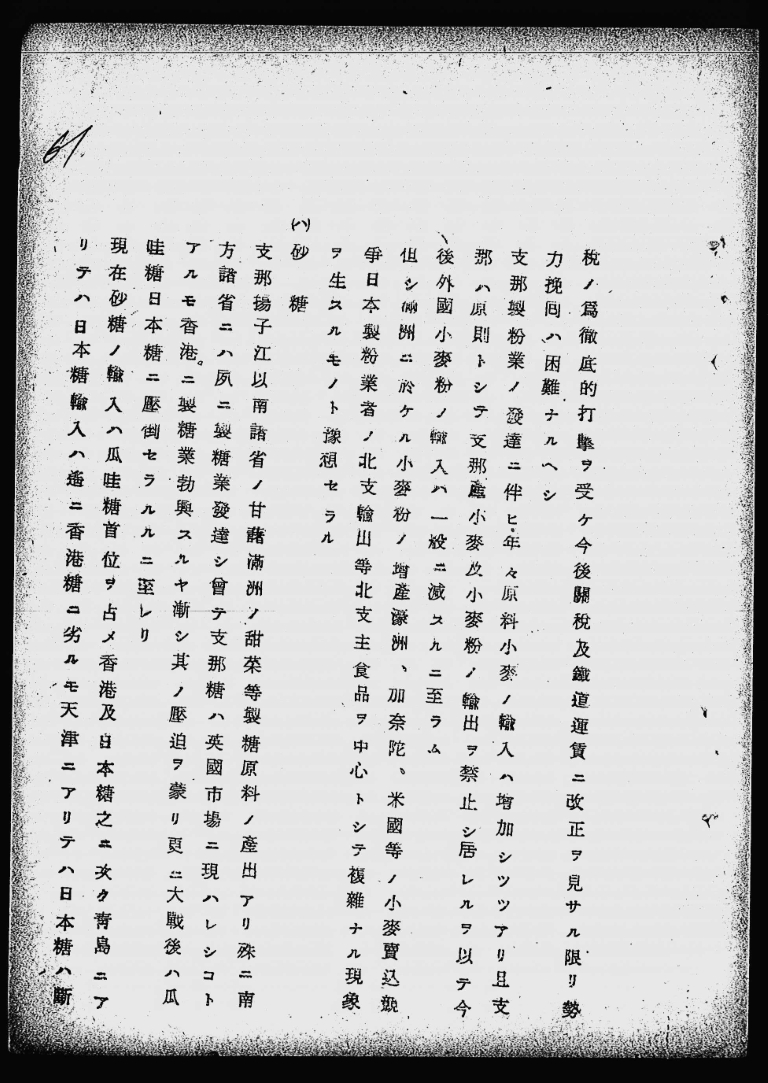 61
稅ノ爲徹底的打擊ヲ受ケ今後關稅及鐵道運賃ニ改正ヲ見サル限リ勢
力挽囘ハ困難ナルヘシ
支那製粉業ノ發達ニ伴ヒ年々原料小麥ノ輸入ハ增加シツツアリ且支
那ハ原則トシテ支那產小麥及小麥粉ノ輸出ヲ禁止シ居レルヲ以テ今
後外國小麥粉ノ輸入ハ一般ニ減スルニ至ラム
但シ滿洲ニ於ケル小麥粉ノ增產濠洲、加奈陀、米國等ノ小麥賣込競
爭日本製粉業者ノ北支輸出等北支主食品ヲ中心トシテ複雜ナル現象
ヲ生スルモノト豫想セラル
(ハ)砂糖
支那揚子江以南諸省ノ甘藷滿洲ノ甜菜等製糖原料ノ產出アリ殊ニ南
方諸省ニハ夙ニ製糖業發達シ曾テ支那糖ハ英國市場ニ現ハレシコト
アルモ香港ニ製糖業勃興スルヤ漸シ其ノ壓迫ヲ蒙リ更ニ大戰後ハ瓜
哇糖日本糖ニ壓倒セラルルニ至レリ
現在砂糖ノ輸入ハ瓜哇糖首位ヲ占メ香港及日本糖之ニ次ク靑島ニア
リテハ日本糖輸入ハ遙ニ香港糖ニ劣ルモ天津ニアリテハ日本糖ハ斷